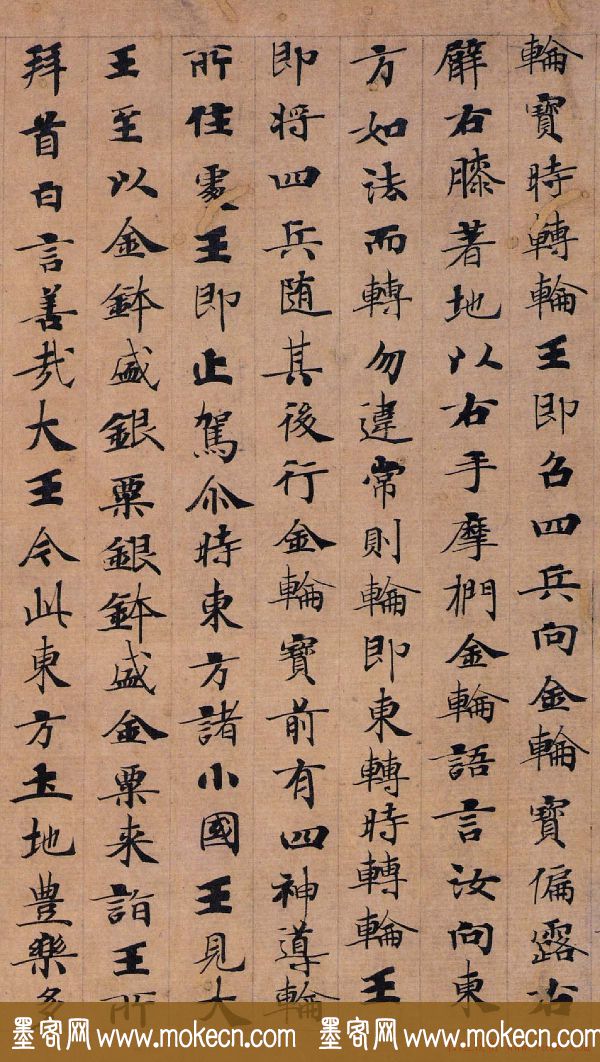 輪寶時轉輪王即召四兵向金輪寶偏露右
臂右膝著地以右手摩捫金輪語言汝向東
方如法而轉勿違常則輪即東轉時轉輪王
即将四兵随其後行金輪寶前有四神導輪
所住處王即止駕尒時東方諸小國王見大
王至以金鉢盛銀粟銀鉢盛金粟来詣王所
拜首白言善哉大王今此東方土地豊樂多
墨客网 www.mokecn.com 墨客网 www.mokecn.com